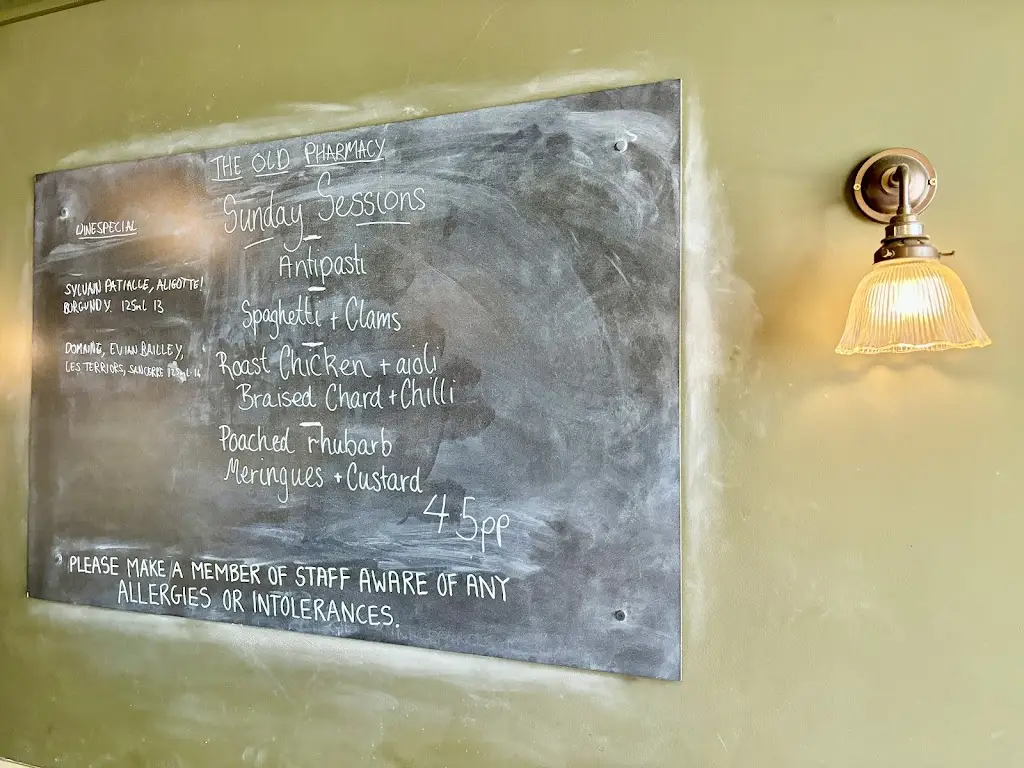 THE OLD PHARMACY
Sunday Sessions
Antipasti
Spaghetti + Clams
Roast Chicken + aioli
Braised Chard + Chilli
Poached rhubarb
Meringues + Custard
45pp
WINESPECIAL
SYLVAIN PATIALLE, ALIGOTTE!
BURGUNDY. 125ml 13
DOMAINE, EVIAN BAILLEY,
LES TERRIORS, SANCERRE 125ml 14
PLEASE MAKE A MEMBER OF STAFF AWARE OF ANY
ALLERGIES OR INTOLERANCES.